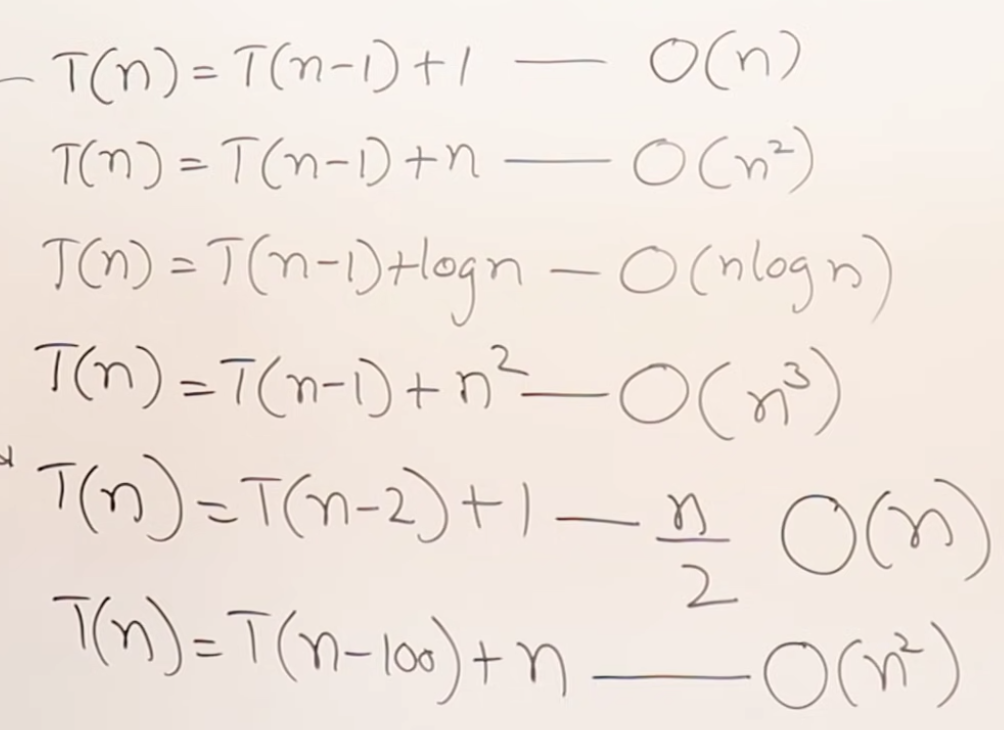 T(n) = T(n-1) + 1 — O(n)
T(n) = T(n-1) + n — O(n²)
T(n) = T(n-1) + log n — O(n log n)
T(n) = T(n-1) + n² — O(n³)
T(n) = T(n-2) + 1 — n/2 O(n)
T(n) = T(n-100) + n — O(n²)